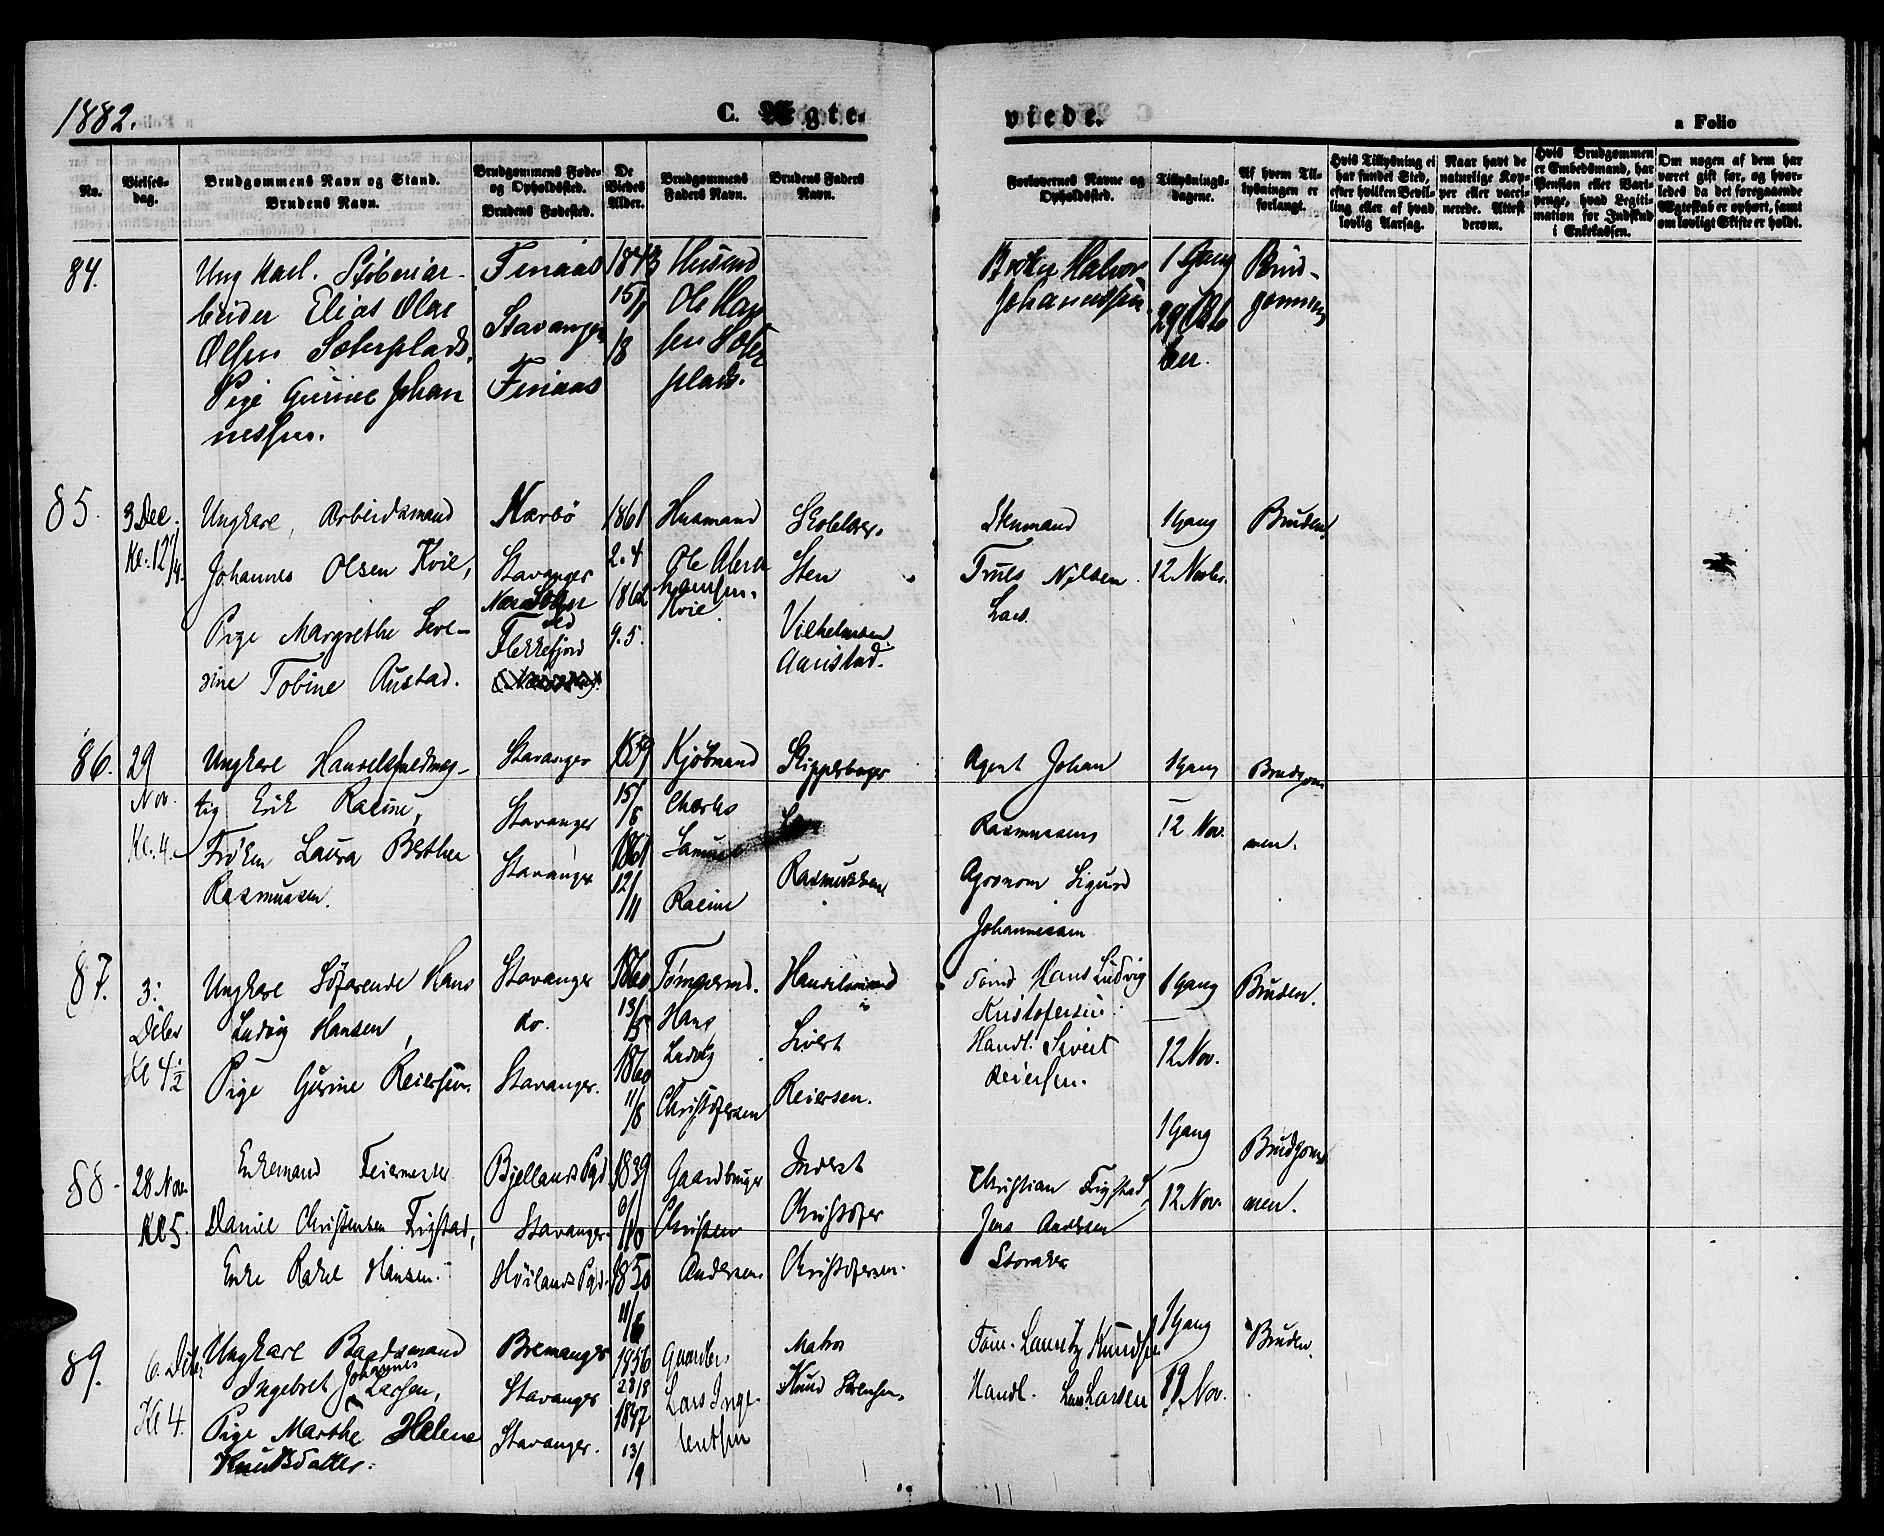 1882.
C. Ægte-
viede.
a Folio
No.
Vielses-
dag.
Brudgommens Navn og Stand.
Brudens Navn.
Brudgommens Føde-
og Opholdssted.
Brudens Fødested.
De
Viedes
Alder.
Brudgommens
Faders Navn.
Brudens Faders
Navn.
Forlovernes Navne og
Opholdssted.
Tillysnings-
dagene.
Af hvem Til-
lysningen er
forlangt.
Hvis Tillysning ei
har fundet Sted,
efter hvilken Bevil-
ling eller af hvad
lovlig Aarsag.
Naar havt de
naturlige Kop-
per eller vacci-
nerede. Attest
derom.
Hvis Brudgommen
er Embedsmand, har
Pension eller Vart-
penge, hvad Legiti-
mation for Indskud
i Enkekassen.
Om nogen af dem har
været gift før, og hvor-
ledes da det foregaaende
Ægteskab er ophørt, samt
om lovligt Skifte er holdt.
84.
Ung Karl. Støberiar-
beider Elias Olai
Olsen Sæterplads,
Pige Gurine Johan
nessen.
Finaas
Stavanger
Finaas
1843
15/1
/8
Husmd
Ole Han
sen Sæter
plads.
Halvor
Johannessen
1 Gang
29 Okto
ber.
Brud-
gommen
85.
3 Dec.
Kl. 12 1/4.
Ungkarl, Arbeidsmand
Johannes Olsen Kvie,
Pige Margrethe Seve-
rine Tobine Austad.
Nærbö
Stavanger
ved
Flekkefjord
1861
2.4
1862
9.5.
Husmand
Ole Abra
hamsen
Kvie.
Skolelær.
Sten
Vilhelmsen
Aanstad.
Stenmand
Truls Nilsen
Lars.
1 Gang
12 Novbr.
Bruden.
86.
29
Nov.
Kl. 4.
Ungkarl Handelsfuldmæg-
tig Erik Racine,
Frøken Laura Berthea
Rasmussen.
Stavanger
Stavanger
Stavanger
1859
15/8
1861
12/11
Kjöbmand
Charles
Samuel
Racine
Skipperborger
Lars
Rasmussen
Agent Johan
Rasmussen
Agronom Sigurd
Johannessen
1 Gang
12 Nov.
Brudgom
men.
87.
3:
Dcbr
Kl 4 1/2
Ungkarl Söfarende Hans
Ludvig Hansen,
Pige Gurine Reiersen.
Stavanger
do.
Stavanger.
1860
13/5
1860
11/8
Tömmermd.
Hans
Ludvig
Christofersen
Handelsmand
Sivert
Reiersen.
Tömd Hans Ludvig
Kristofersen.
Handl. Sivert
Reiersen.
1 Gang
12 Nov.
Bruden.
88.
28 Nov.
Kl 5.
Enkemand Feiermester
Daniel Christensen Frigstad,
Enke Rakel Hansen.
Bjellands Pgd
Stavanger.
Höilands Pgd.
1839
/10
1850
11/6
Gaardbruger
Christen
Andersen.
Inderst
Christofer
Christofersen.
Christian Frigstad,
Jens Andersen
Storaker
1 Gang
12 Nov.
Brudgom
men.
89.
6. Dcbr
Kl 4.
Ungkarl Baadsmand
Ingebret Johannes
Larsen,
Pige Marthe Helene
Knudsdatter.
Bremanger
Stavanger
Stavanger.
1856
28/8
1847
13/9
Gaardbr.
Lars Inge-
bretsen
Matros
Knud Sörensen.
Töm. Lauritz Knudsen
Handl. Lars Larsen
1 Gang
19 Nov.
Bruden.